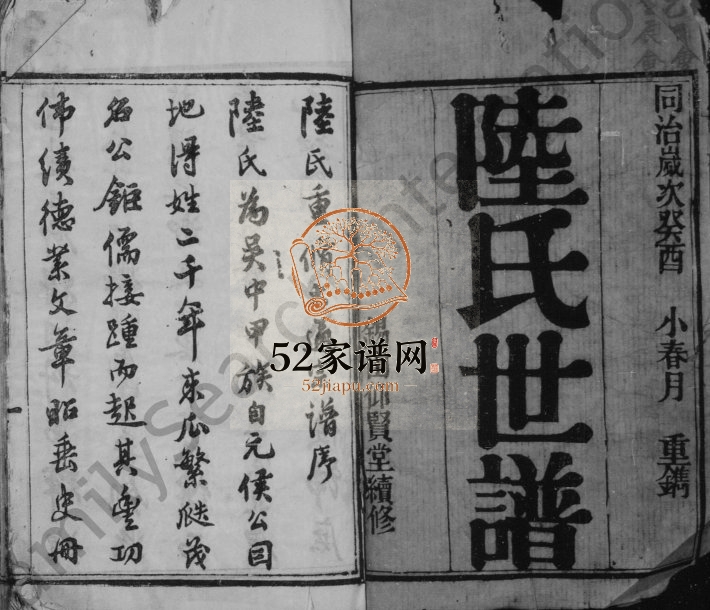 同治嵗次癸酉 小春月 重鐫
陸氏世譜
仰賢堂續修
陸氏重修 譜序
陸氏為吳中甲族自元侯公因
地得姓二千年来瓜繁瓞茂
名公鉅儒接踵而起其豐功
偉績德業文章昭垂史冊
52家谱网
52jiapu.com